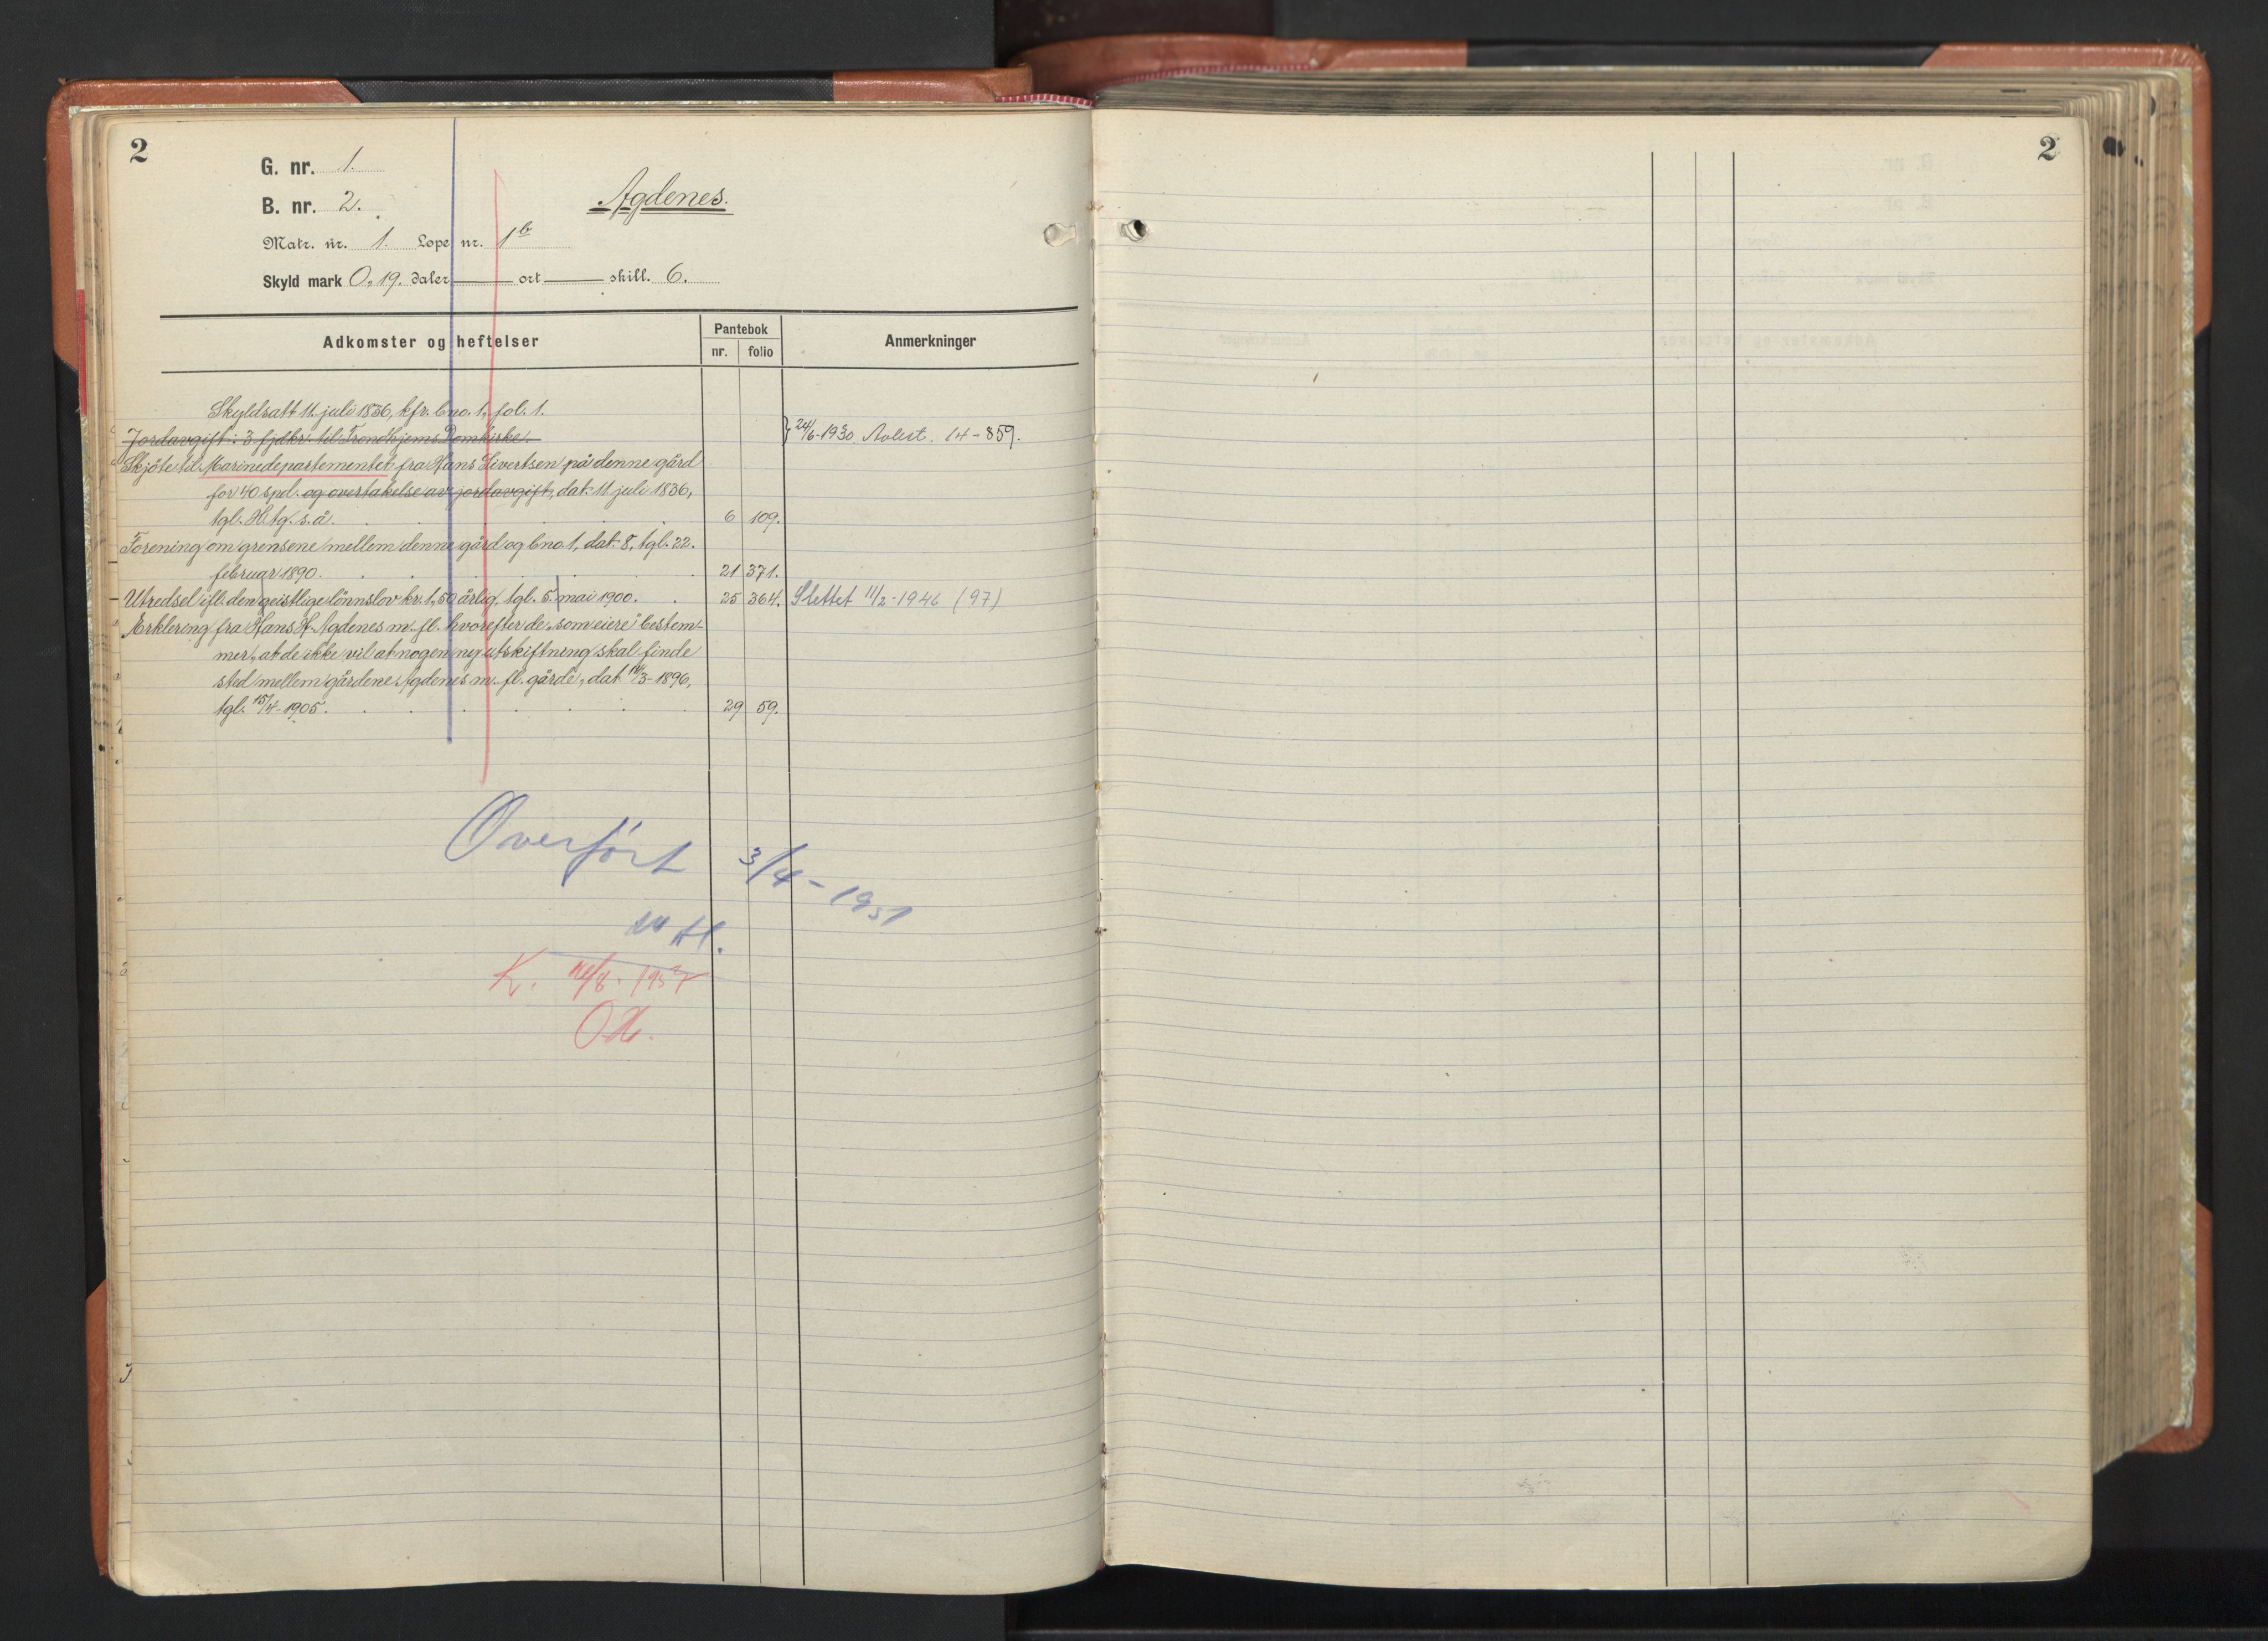 2
G. nr. 1.
B. nr. 2.
Agdenes.
Matr. nr. 1. Løpe nr. 1 b
Skyld mark 0,19. daler ort skill. 6.
Adkomster og heftelser
Pantebok
nr. folio
Anmerkninger
Skyldsatt 11. juli 1836, kfr. bno. 1, fol. 1.
Jordavgift: 3 fjdkr. til Trondhjems Domkirke. 24/6-1930. Avlest. 14-859.
Skjøte til Marinedepartementet fra Hans Sivertsen på denne gård
for 40 spd. og overtakelse av jordavgift, dat. 11. juli 1836,
tgl. H.tg. s.å. 6 109.
Forening om grensene mellem denne gård og bno. 1, dat. 8, tgl. 22.
februar 1890. 21 371.
Utredsel ifl. den geistlige lönnslov kr. 1,50 årlig, tgl. 5. mai 1900. 25 364. Slettet 11/2-1946 (97)
Erklering fra Hans H. Agdenes m. fl. hvorefter de "som eiere" bestem-
mer, at de ikke vil at nogen ny utskiftning skal finde
sted mellem gårdene Agdenes m. fl. gårde, dat. 14/3-1896,
tgl. 15/4-1905. 29 59.
Overført 3/4-1951
K. /8. 1957
OH.
2